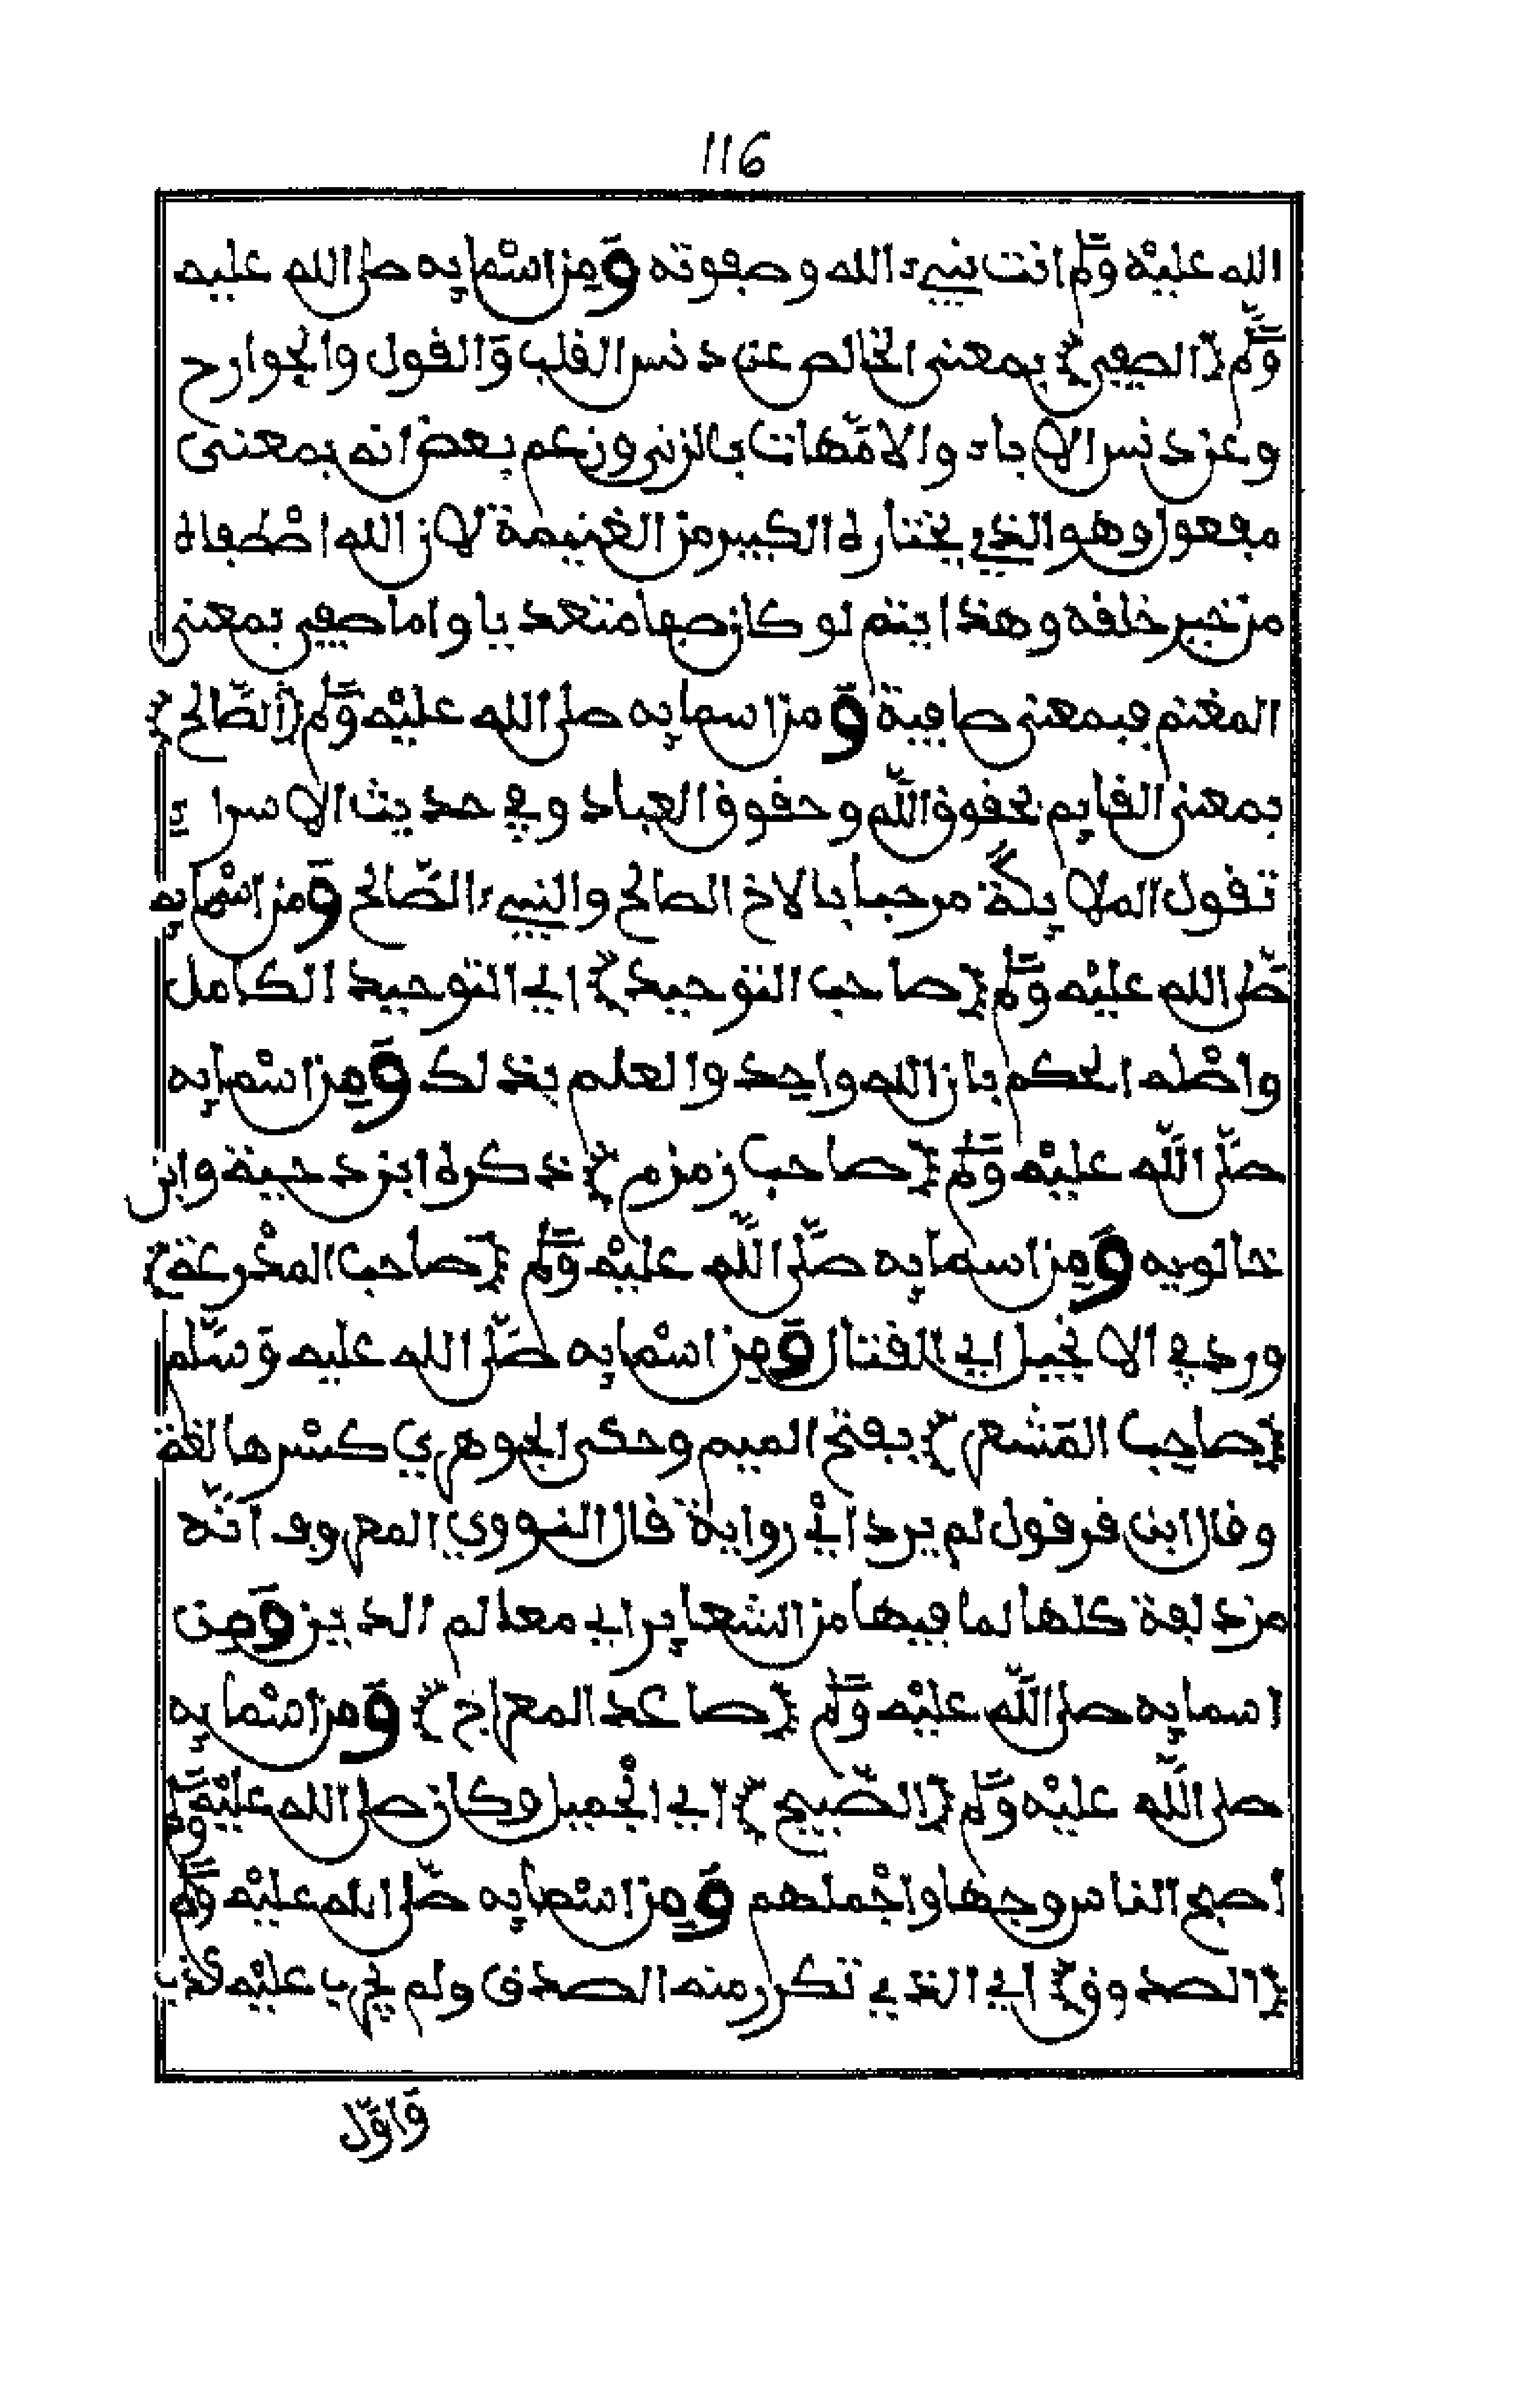 116
الله عليه وسلم انت نبيء الله وصفوته ومن اسمايه صلى الله عليه
وسلم {الصفي} بمعنى الخالص عن دنس القلب والقول والجوارح
وعن دنس الاباء والامهات بالزنى وزعم بعض انه بمعنى
مفعول وهو الذي يختاره الكبير من الغنيمة لان الله اصطفاه
من خير خلقه وهذا يتم لو كان صفا متعديا واما صفي بمعنى
المغنم فبمعنى صافية ومن اسمايه صلى الله عليه وسلم {الصالح}
بمعنى القايم بحقوق الله وحقوق العباد وفي حديث الاسراء
تقول الملايكة مرحبا بالاخ الصالح والنبيء الصالح ومن اسمايه
صلى الله عليه وسلم {صاحب التوحيد} اي التوحيد الكامل
واصله الحكم بان الله واحد والعلم بذلك ومن اسمايه
صلى الله عليه وسلم {صاحب زمزم} ذكره ابن دحية وابن
خالويه ومن اسمايه صلى الله عليه وسلم {صاحب المدرعة}
ورد في الانجيل اي القتال ومن اسمايه صلى الله عليه وسلم
{صاحب المشعر} بفتح الميم وحكى الجوهري كسرها لغة
وقال ابن قرقول لم يرد اي رواية قال النووي المعروف انه
مزدلفة كلها لما فيها من الشعاير اي معالم الدين ومن
اسمايه صلى الله عليه وسلم {صاعد المعراج} ومن اسمايه
صلى الله عليه وسلم {الصبيح} اي الجميل وكان صلى الله عليه وسلم
اصبح الناس وجها واجملهم ومن اسمايه صلى الله عليه وسلم
{الصدوق} اي الذي تكرر منه الصدق ولم يجرب عليه كذب
واول